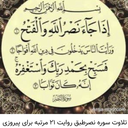 بسم الله الرحمن الرحيم
إِذَا جَاءَ نَصْرُ اللَّهِ وَالْفَتْحُ
وَرَأَيْتَ النَّاسَ يَدْخُلُونَ فِي دِينِ اللَّهِ أَفْوَاجًا
فَسَبِّحْ بِحَمْدِ رَبِّكَ وَاسْتَغْفِرْهُ
إِنَّهُ كَانَ تَوَّابًا
تلاوت سوره نصرطبق روایت ۲۱ مرتبه برای پیروزی